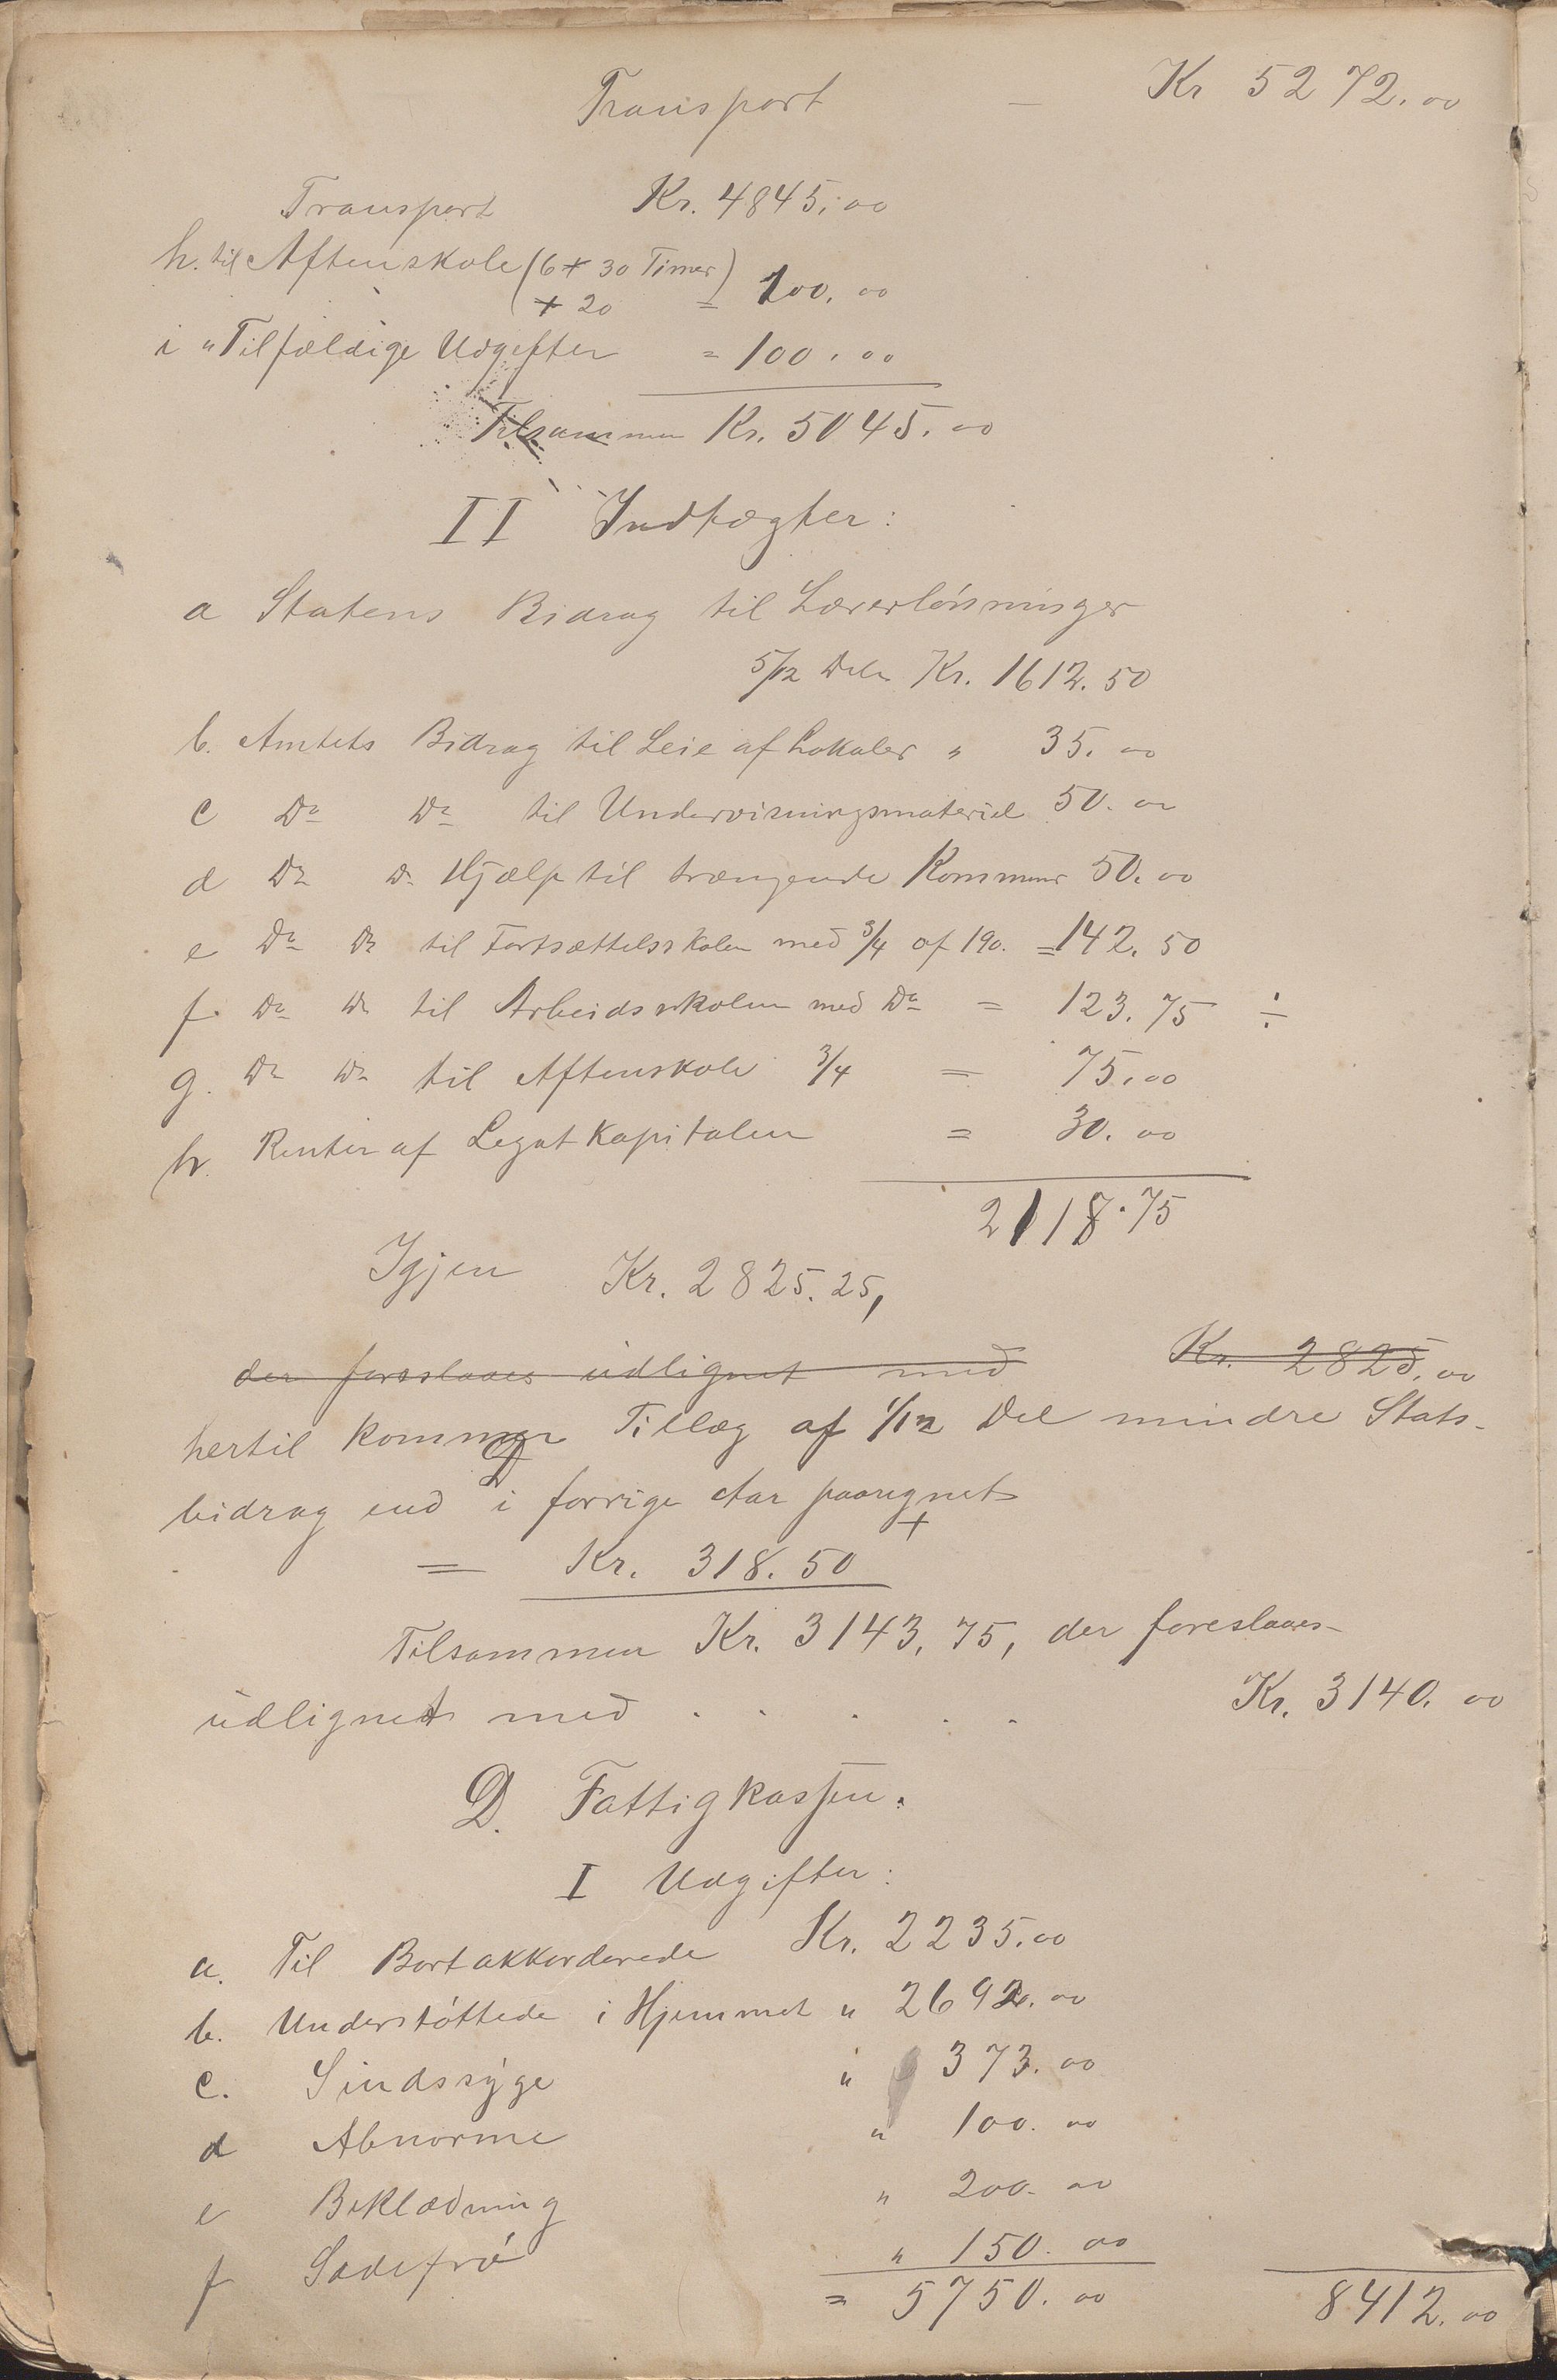 Transport — Kr 5272.00
Transport Kr. 4845.00
h. til Aftenskole (6 + 30 Timer)
+ 20 = 100.00
i " Tilfældige Udgifter = 100.00
Tilsammen Kr. 5045.00
II Indtægter:
a Statens Bidrag til Lærerlønninger
5/12 Dele Kr. 1612.50
b. Amtets Bidrag til Leie af Lokaler " 35.00
c Do Do til Undervisningsmateriel 50.00
d Do Do Hjælp til trængende Kommuner 50.00
e Do Do til Fortsættelsskolen med 3/4 af 190. = 142.50
f. Do Do til Arbeidsskolen med Do = 123.75 ÷
g. Do Do til Aftenskole 3/4 = 75.00
h. Renter af Legatkapitalen = 30.00
2118.75
Igjen Kr. 2825.25,
der foreslaaes udlignet med Kr. 2825.00
hertil kommer Tillæg af 1/12 Del mindre Stats-
bidrag end i forrige Aar paaregnet
+
= Kr. 318.50
Tilsammen Kr. 3143,75, der foreslaaes
udlignet med . . . . . Kr. 3140.00
D. Fattigkassen.
I Udgifter:
a. Til Bortakkorderede Kr. 2235.00
b. Understøttede i Hjemmet " 2692.00
c. Sindssyge " 373.00
d Abnorme " 100.00
e Beklædning " 200.00
f Sædefrø " 150.00
= 5750.00 8412.00